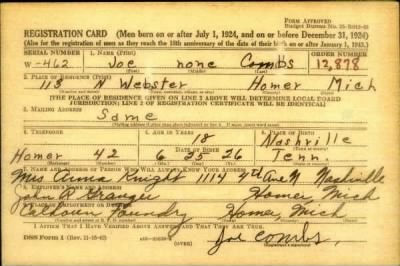 FORM APPROVED
REGISTRATION CARD (Men born on or after July 1, 1924, and on or before December 31, 1924)
(Also for the registration of men as they reach the 18th anniversary of the date of their birth on or after January 1, 1943.)
SERIAL NUMBER 1. NAME (Print) ORDER NUMBER
W-462 Joe none Combs 13,878
2. PLACE OF RESIDENCE (Print)
118 N Webster Homer Mich
[THE PLACE OF RESIDENCE GIVEN ON LINE 2 ABOVE WILL DETERMINE LOCAL BOARD
JURISDICTION; LINE 2 OF REGISTRATION CERTIFICATE WILL BE IDENTICAL]
3. MAILING ADDRESS
Same
4. TELEPHONE 5. AGE IN YEARS 6. PLACE OF BIRTH
18 Nashville
DATE OF BIRTH
Homer 42 6 25 26 Tenn.
7. NAME AND ADDRESS OF PERSON WHO WILL ALWAYS KNOW YOUR ADDRESS
Mrs Anna Knight 1114 Ave N Nashville
8. EMPLOYER'S NAME AND ADDRESS
John R Granger Homer Mich
9. PLACE OF EMPLOYMENT OR BUSINESS
Calhoun Foundry Homer, Mich
I AFFIRM THAT I HAVE VERIFIED ABOVE ANSWERS AND THAT THEY ARE TRUE.
DSS Form 1
Joe Combs.